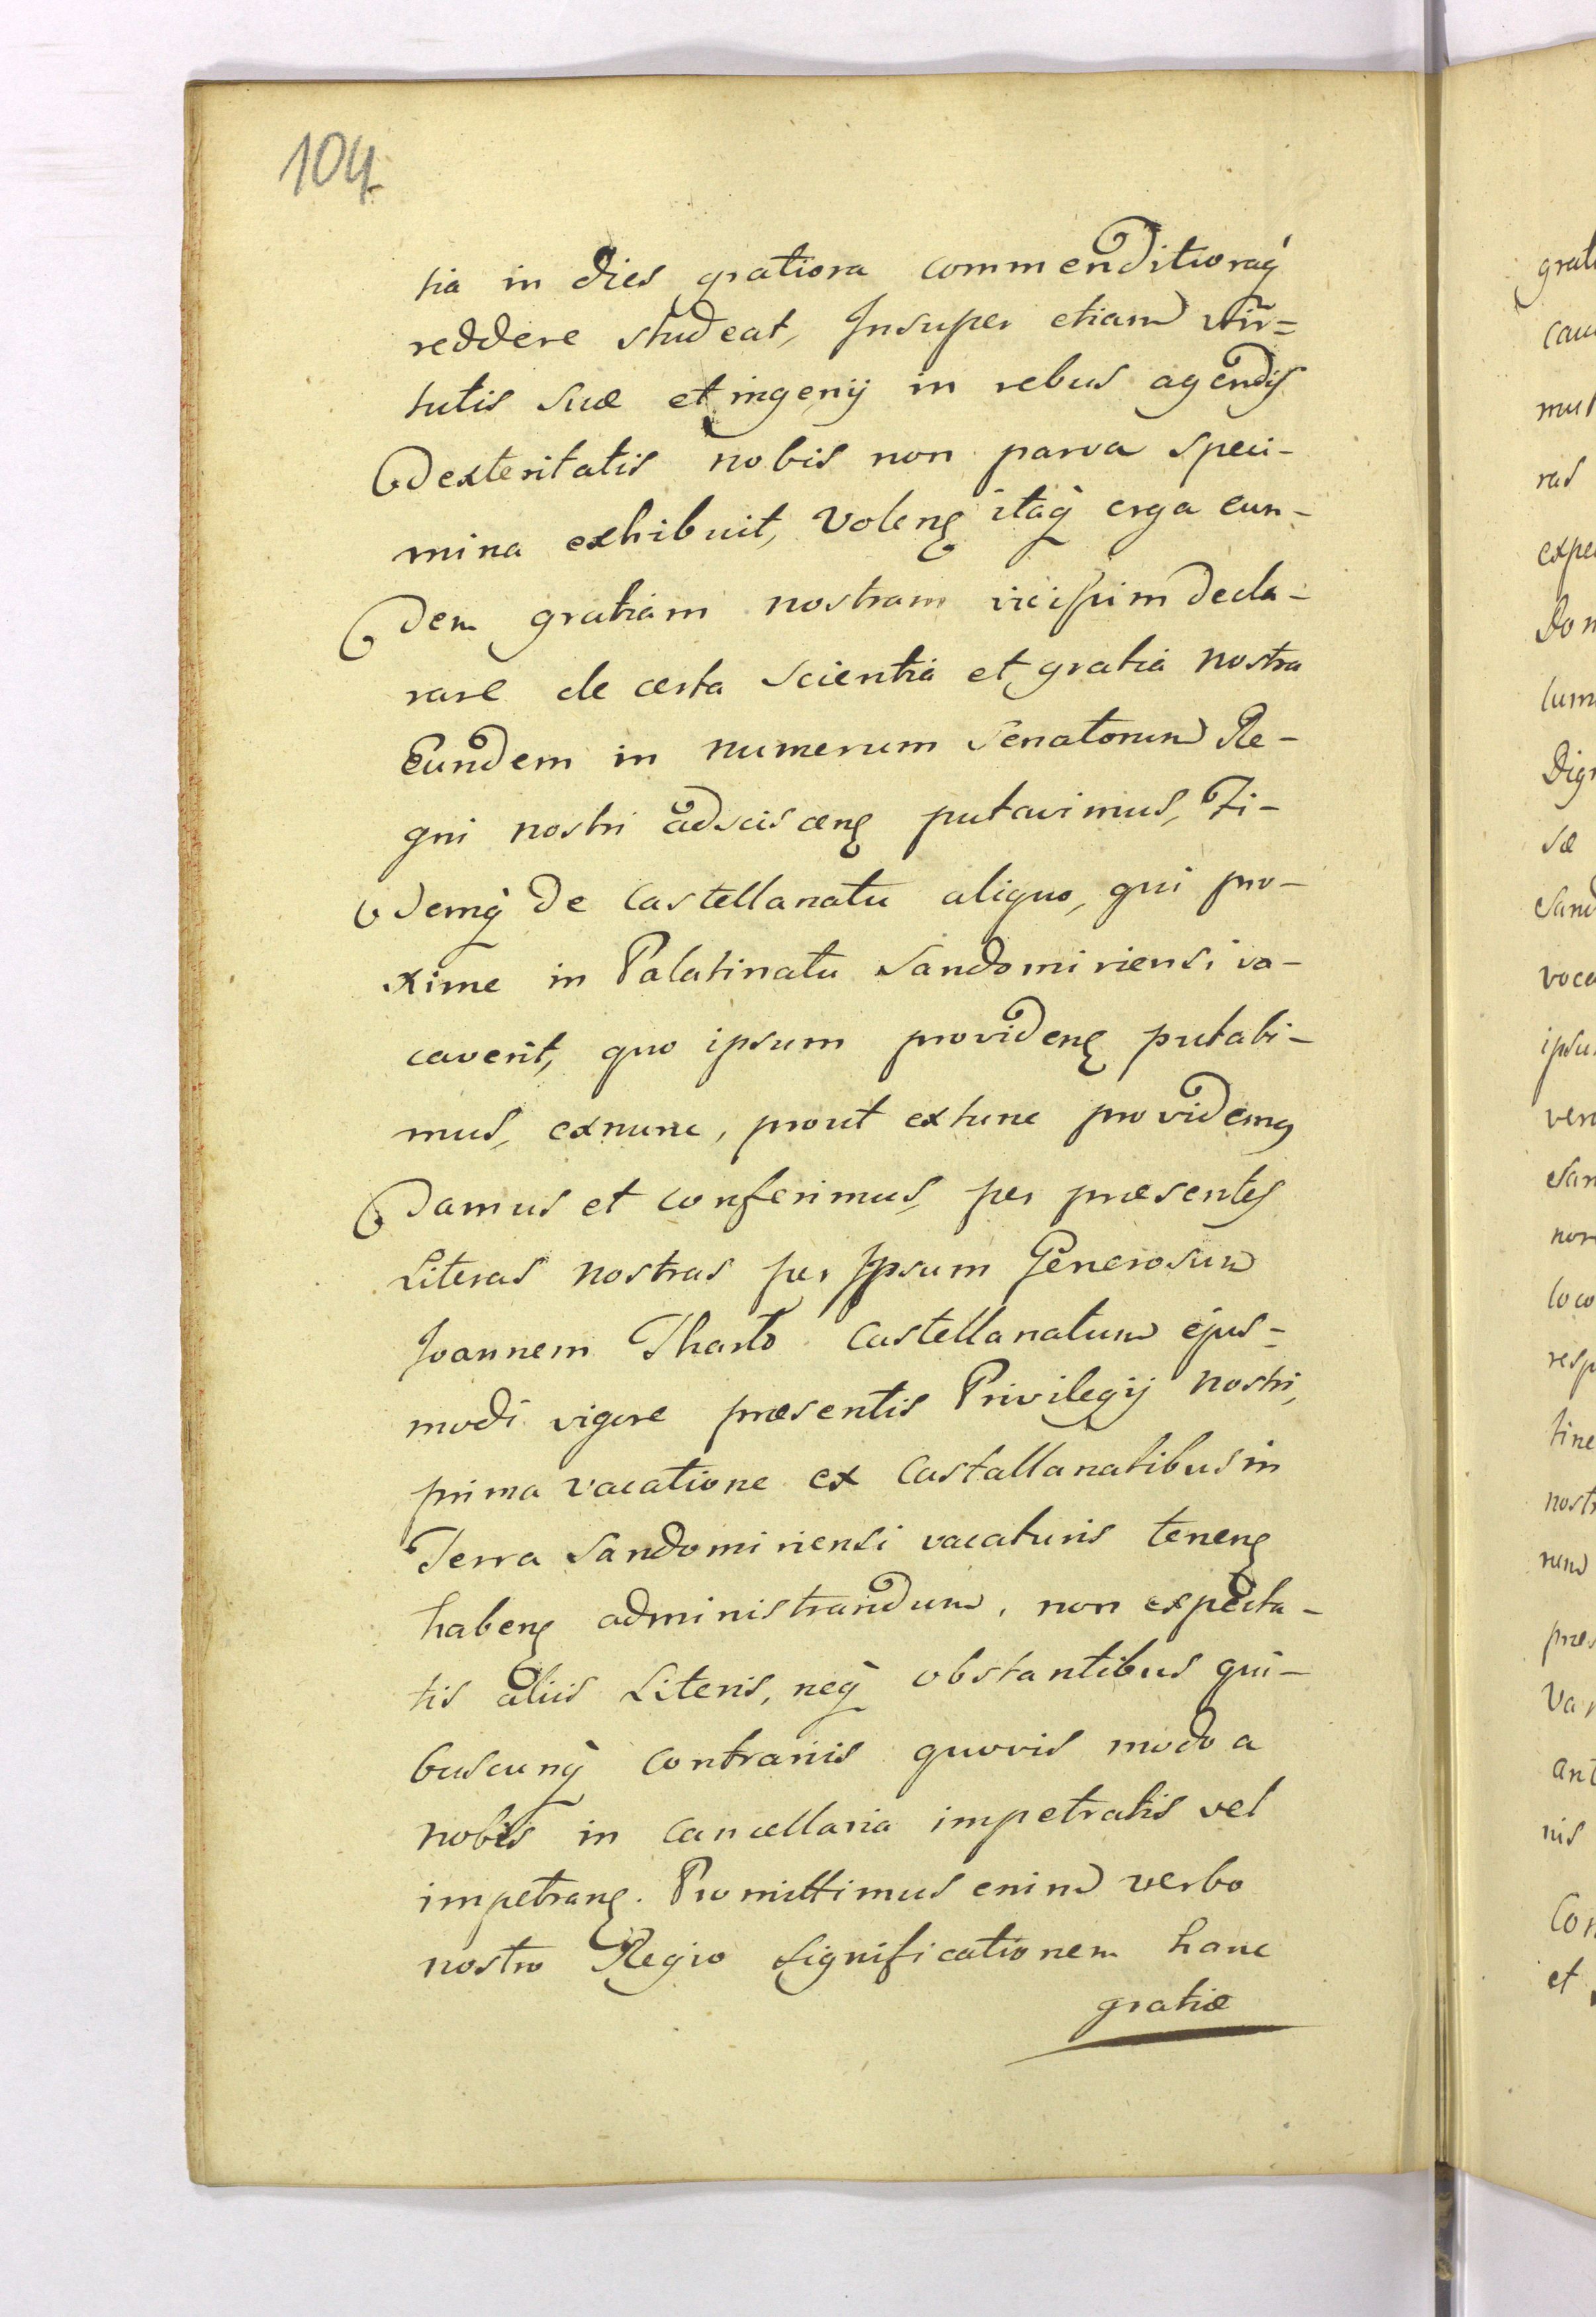 104.
tia in dies gratiora commenditioraq́
reddere studeat, Insuper etiam vir=
tutis suæ et ingenij in rebus agendis
dexteritatis nobis non parva speci-
mina exhibuit, Volenę itaq̀ erga eun-
dem gratiam nostram vicissim decla-
rare de certa scientia et gratia nostra
Eundem in numerum Senatorum Re-
gni nostri adsciscenę putavimus, Ti-
demq̀ de Castellanatu aliquo, qui pro-
xime in Palatinatu Sandomiriensi va-
caverit, quo ipsum providenę putabi-
mus, exnunc, prout extunc providemꝰ
damus et conferimus, per præsentes
Literas nostras per Ipsum Generosum
Joannem Tharło Castellanatum ejus=
modi vigore præsentis Privilegij nostri,
prima vacatione ex Castallanatibus in
Terra Sandomiriensi vacaturis tenenę
habenę administrandum, non expecta-
tis aliis Literis, neq̀ obstantibus qui-
buscunq̀ contrariis quovis modo a
nobis in cancellaria impetratis vel
impetranę. Promittimus enim verbo
nostro Regio significationem hanc
gratiæ
grati
cau
mul
ras
expe
don
lum
Dign
sæ
Sand
voca
ipsu
vero
San
nor
loco
resp
tine
nost
rum
præs
Va
ant
nis
Con
et